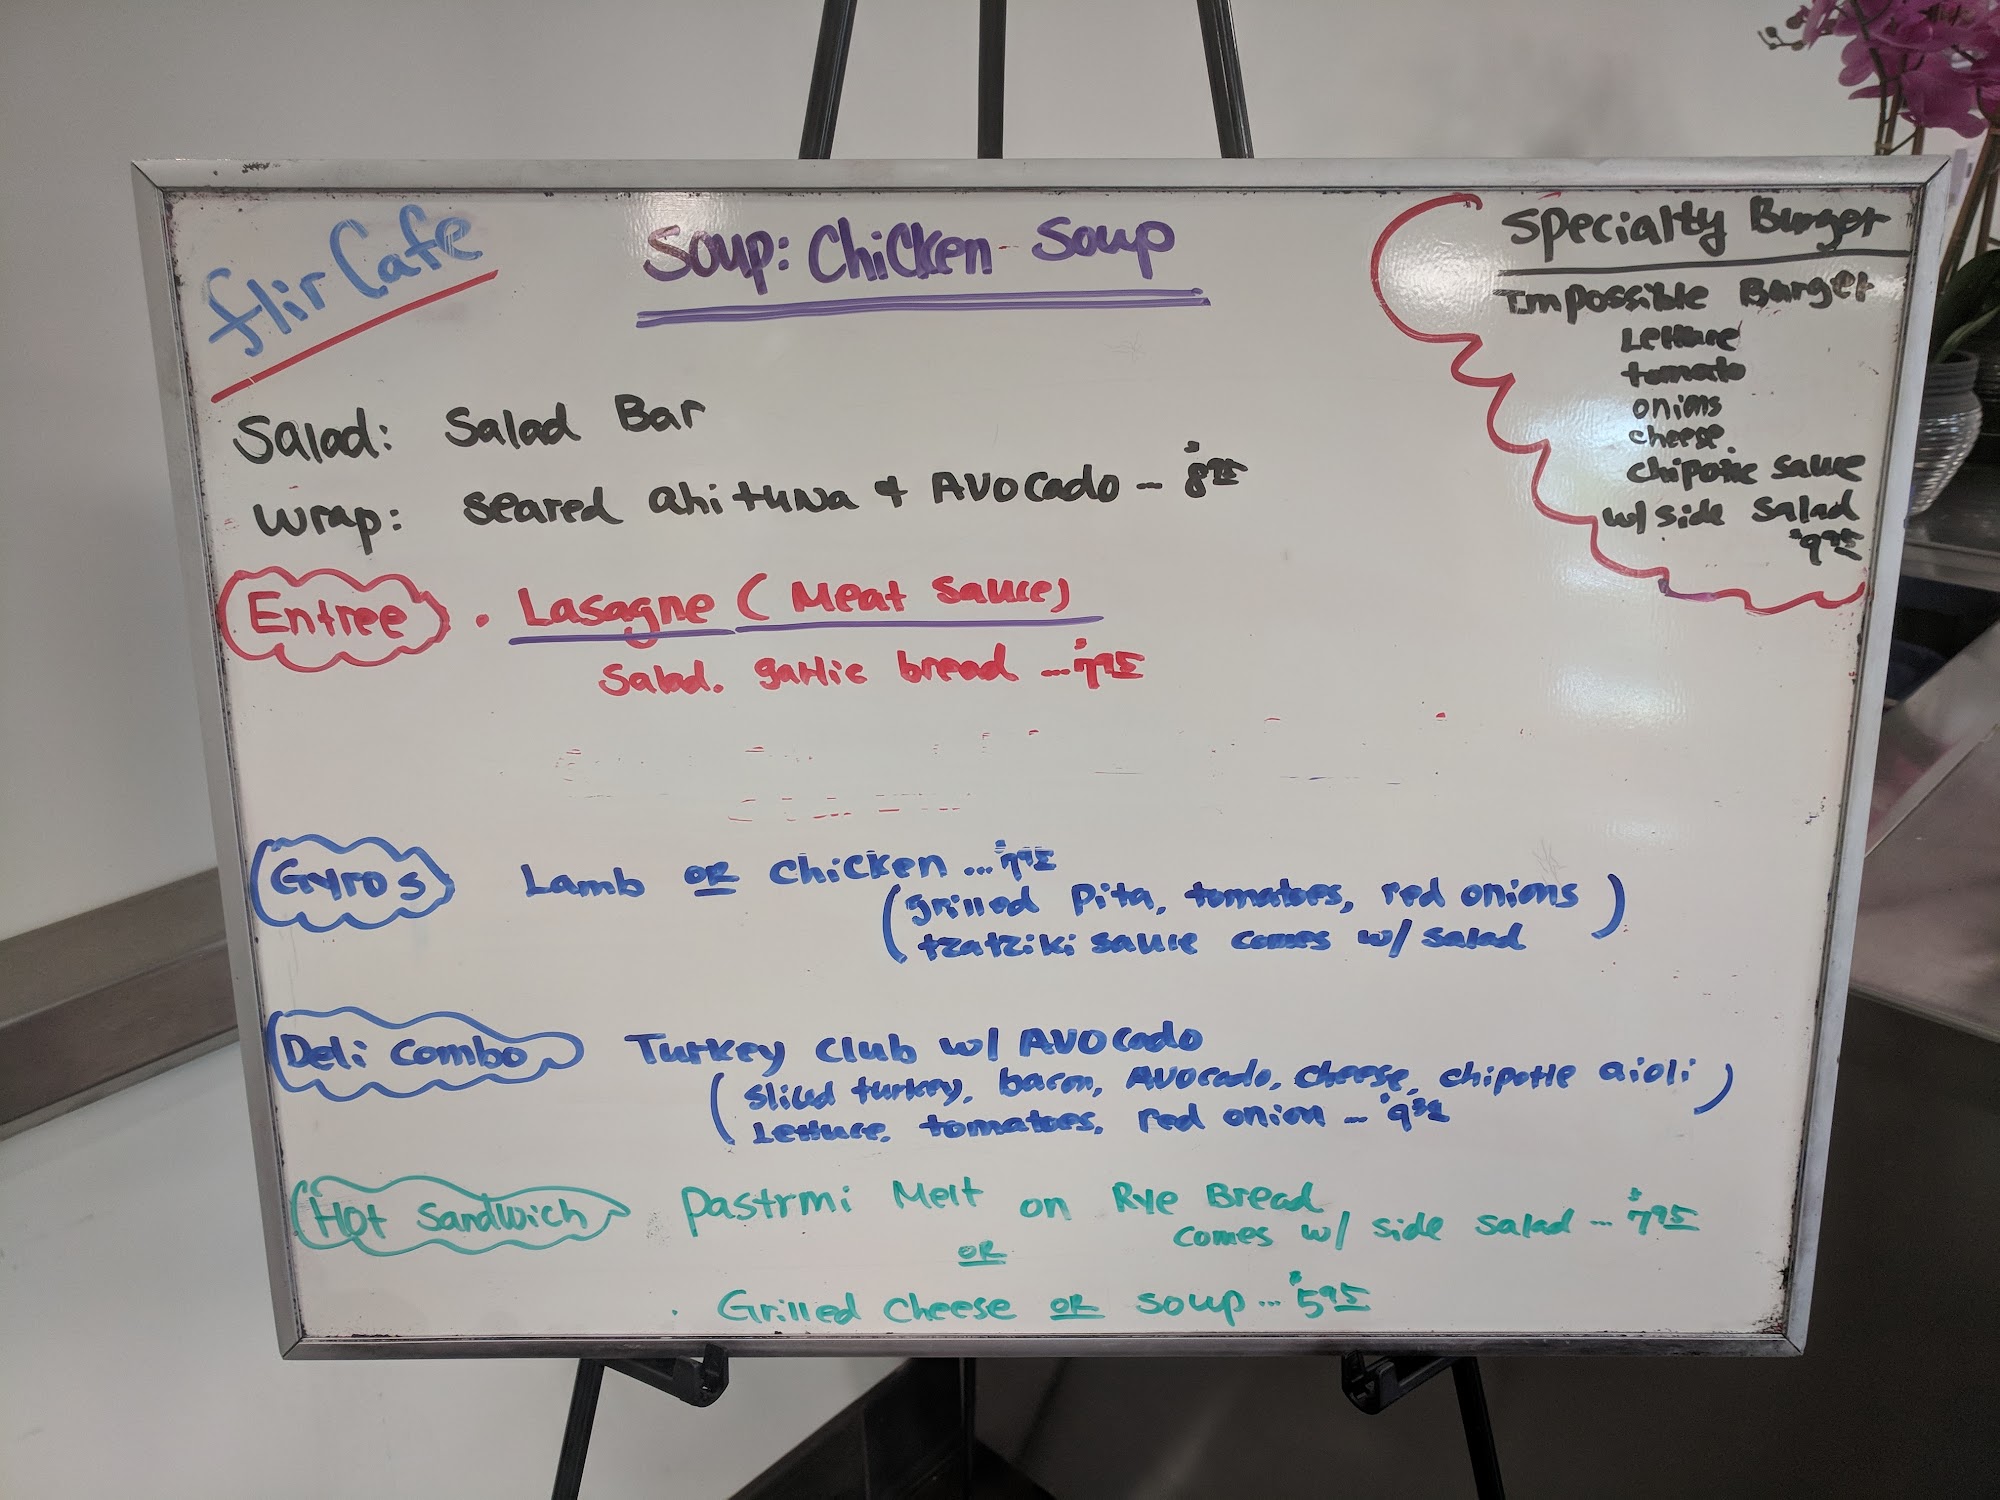 flir Cafe
Soup: Chicken Soup
Specialty Burger
Impossible Burger
Lettuce
tomato
onions
cheese
chipotle sauce
w/ side salad
$9.95
Salad: Salad Bar
Wrap: Seared ahi tuna & Avocado - $8.95
Entree • Lasagne (Meat Sauce)
Salad. garlic bread ... $7.95
Gyros Lamb OR Chicken ... $7.95
(grilled Pita, tomatoes, red onions
tzatziki sauce comes w/ salad)
Deli Combo Turkey Club w/ Avocado
(sliced turkey, bacon, Avocado, cheese, chipotle aioli
Lettuce, tomatoes, red onion ...)
Hot Sandwich Pastrmi Melt on Rye Bread
comes w/ side salad ... $7.95
OR
. Grilled Cheese OR soup ... $5.95